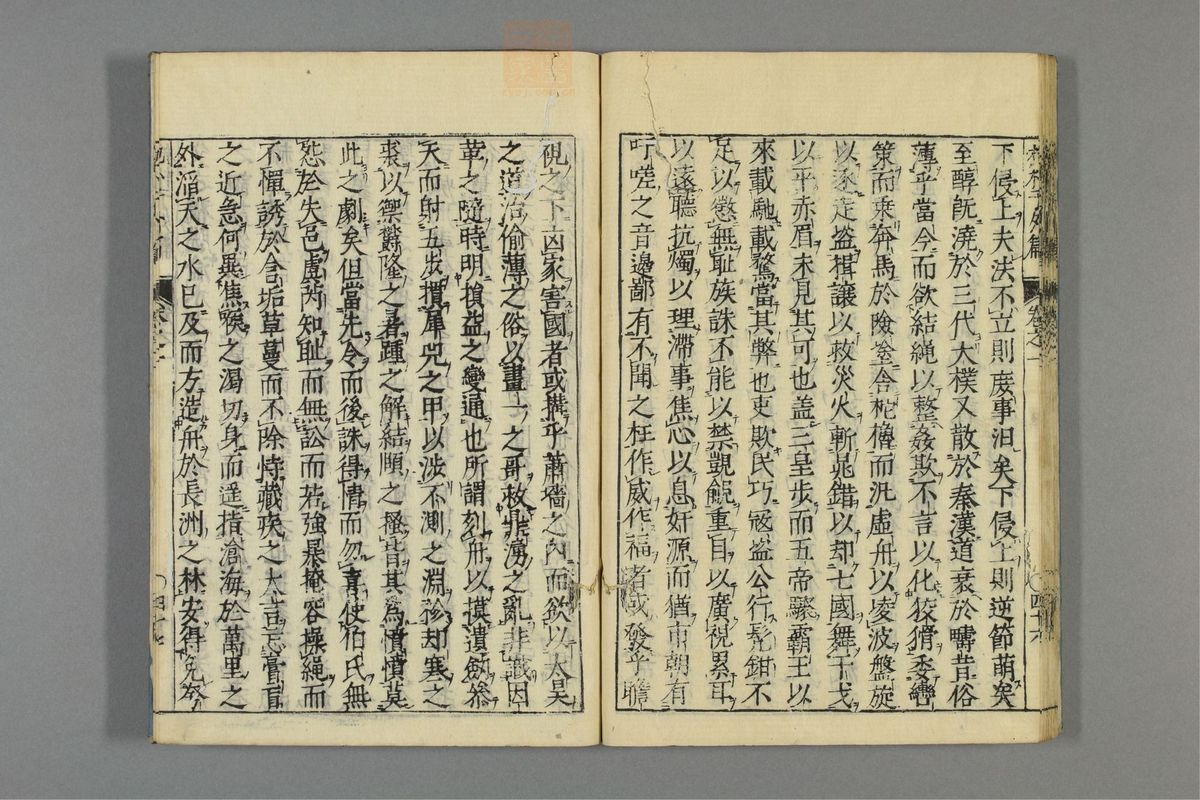 抱朴子外篇　卷之一　四十六
下侵上夫法不立則庶事汩矣下侵上則逆節萌矣
至醇旣澆於三代大樸又散於秦漢道衰於疇昔俗
薄乎當今而欲結繩以整姦欺不言以化狡猾委轡
策而乗奔馬於險塗舎柁櫓而汎虛舟以凌波盤旋
以逐走盗揖讓以救災火斬晁錯以却七國舞干戈
以平赤眉未見其可也盖三皇步而五帝驟霸王以
來載馳載騖當其弊也吏欺民巧冦盗公行髡鉗不
足以懲無恥族誅不能以禁覬覦重目以廣視累耳
以遠聽抗燭以理滯事焦心以息奸源而猶市朝有
吁嗟之音邊鄙有不聞之枉作威作福者或發乎瞻
視之下凶家害國者或搆乎蕭墻之內而欲以太昊
之道治偷薄之俗以畫一之哥救鼎湧之亂非識因
革之隨時明損益之變通也所謂刻舟以摸遺劒叅
天而射五步摜犀兕之甲以涉不測之淵袗却寒之
裘以禦鬱隆之暑踵之解結頤之搔背其爲憒憒莫
此之劇矣但當先令而後誅得情而勿喜使伯氏無
怨於失邑虞芮知恥而無訟而若強暴掩容操繩而
不憚誘於含垢草蔓而不除恃藏疾之大言忘膏肓
之近急何異焦喉之渴切身而遥指滄海於萬里之
外滔天之水已及而方造舟於長洲之林安得免夲
四十七